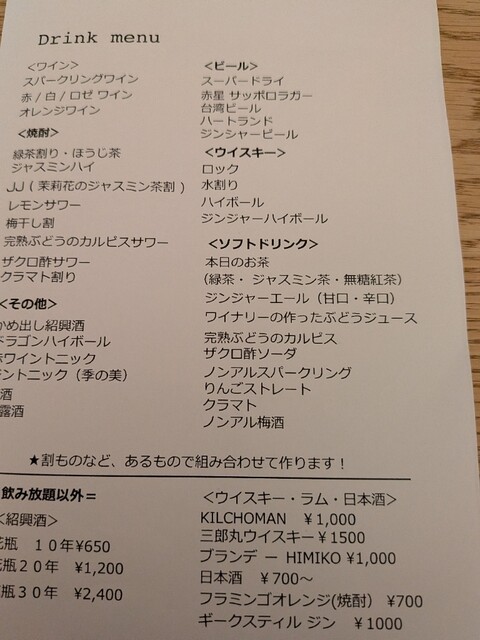 Drink menu
<ワイン>
スパークリングワイン
赤/白/ロゼ ワイン
オレンジワイン
<焼酎>
緑茶割り・ほうじ茶
ジャスミンハイ
JJ ( 茉莉花のジャスミン茶割 )
レモンサワー
梅干し割
完熟ぶどうのカルピスサワー
ザクロ酢サワー
クラマト割り
<その他>
かめ出し紹興酒
ドラゴンハイボール
赤ワイントニック
ジントニック（季の美）
酒
露酒
<ビール>
スーパードライ
赤星 サッポロラガー
台湾ビール
ハートランド
ジンシャービール
<ウイスキー>
ロック
水割り
ハイボール
ジンジャーハイボール
<ソフトドリンク>
本日のお茶
（緑茶・ ジャスミン茶・無糖紅茶）
ジンジャーエール（甘口・辛口）
ワイナリーの作ったぶどうジュース
完熟ぶどうのカルピス
ザクロ酢ソーダ
ノンアルスパークリング
りんごストレート
クラマト
ノンアル梅酒
★割ものなど、あるもので組み合わせて作ります！
飲み放題以外＝
<紹興酒>
花瓶 １０年¥650
花瓶２０年 ¥1,200
瓶３０年 ¥2,400
<ウイスキー・ラム・日本酒>
KILCHOMAN ¥1,000
三郎丸ウイスキー¥1500
ブランデー HIMIKO ¥1,000
日本酒 ¥700～
フラミンゴオレンジ(焼酎) ¥700
ギークスティル ジン ¥1000